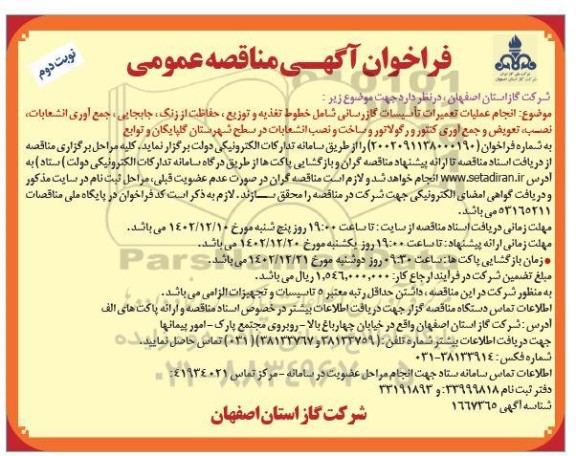 نوبت دوم
فراخوان آگهـی مناقصه عمومی
شرکت گاز استان اصفهان، در نظر دارد جهت موضوع زیر :
موضوع: انجام عملیات تعمیرات تأسیسات گازرسانی شامل خطوط تغذیه و توزیع، حفاظت از زنگ، جابجایی، جمع آوری انشعابات،
نصب، تعویض و جمع آوری کنتور و رگولاتور و ساخت و نصب انشعابات در سطح شهرستان گلپایگان و توابع
به شماره فراخوان (۲۰۰۲۰۹۱۱۳۸۰۰۰۱۹۰) را از طریق سامانه تدارکات الکترونیکی دولت برگزار نماید. کلیه مراحل برگزاری مناقصه
از دریافت اسناد مناقصه تا ارائه پیشنهاد مناقصه گران و بازگشایی پاکت ها از طریق درگاه سامانه تدارکات الکترونیکی دولت (ستاد) به
آدرس www.setadiran.ir انجام خواهد شد و لازم است مناقصه گران در صورت عدم عضویت قبلی، مراحل ثبت نام در سایت مذکور
و دریافت گواهی امضای الکترونیکی جهت شرکت در مناقصه را محقق سـازند. لازم به ذکر است کد فراخوان در پایگاه ملی مناقصات
۵۳۱۶۵۲۱۱ می باشد.
مهلت زمانی دریافت اسناد مناقصه از سایت : تا ساعت ۱۹:۰۰ روز پنج شنبه مورخ ۱۴۰۲/۱۲/۱۰ می باشد.
مهلت زمانی ارائه پیشنهاد : تا ساعت ۱۹:۰۰ روز یکشنبه مورخ ۱۴۰۲/۱۲/۲۰ می باشد.
• زمان بازگشایی پاکت ها : ساعت ۰۹:۳۰ روز دوشنبه مورخ ۱۴۰۲/۱۲/۲۱ می باشد.
مبلغ تضمین شرکت در فرآیند ارجاع کار : ۱,۵۴۶,۰۰۰,۰۰۰ ریال می باشد.
به منظور شرکت در این مناقصه، داشتن حداقل رتبه معتبر ۵ تاسیسات و تجهیزات الزامی می باشد.
اطلاعات تماس دستگاه مناقصه گزار جهت دریافت اطلاعات بیشتر در خصوص اسناد مناقصه و ارائه پاکت های الف
آدرس : شرکت گاز استان اصفهان واقع در خیابان چهارباغ بالا - روبروی مجتمع پارک - امور پیمانها
جهت دریافت اطلاعات بیشتر شماره تلفن : (۳۸۱۳۳۷۵۹ و ۳۸۱۳۳۷۶۷)(۰۳۱) تماس حاصل نمایید.
شماره فکس : ۰۳۱-۳۸۱۳۳۹۱۴
اطلاعات تماس سامانه ستاد جهت انجام مراحل عضویت در سامانه - مرکز تماس ۰۲۱-۴۱۹۳۴
دفتر ثبت نام : ۳۳۹۹۹۸۱۸ و ۳۳۱۹۱۸۹۳
شناسه آگهی ۱۶۶۷۳۶۵
شرکت گاز استان اصفهان